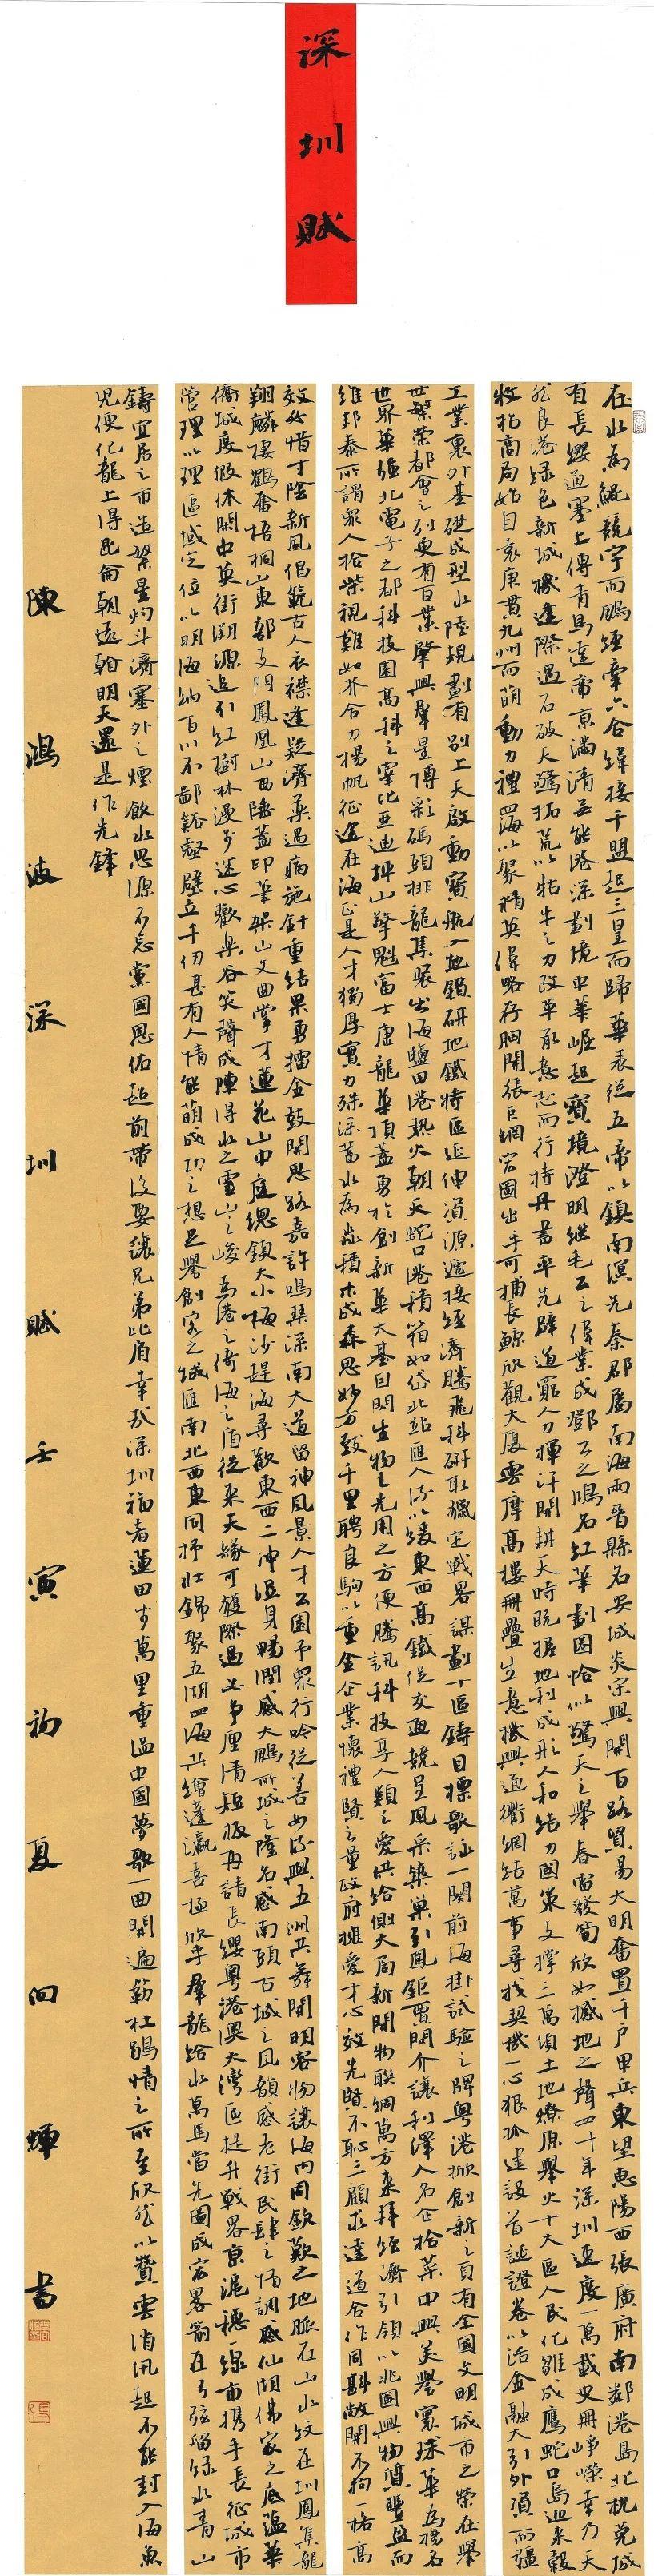 深圳賦
在水為鯤競宇而鵬經牽六合緯接千盟起三皇而歸華表從五帝以鎮南溟先秦郡屬南海兩晉縣名安城炎宋興開百路貿易大明奮置千戶甲兵東望惠陽西張廣府南鄰港島北枕莞城
有長纓通塞上傳青鳥達帝京滿清無能港深劃境中華崛起寶境澄明繼毛公之偉業成鄧公之鴻名紅筆劃圈恰似驚天之舉春雷發筍欣如撼地之聲四十年深圳速度一萬載史冊崢嶸幸乃天
然良港綠色新城機逢際遇石破天驚拓荒以牯牛之力改革承意志而行持丹書率先辟道羅人力揮汗開耕天時既據地利成形人和結力國策支撐三萬頃土地燎原舉火十大區人民化雛成鷹蛇口島迎來轂
牧招商局始自袁庚貫九州而萌動力禮四海以聚精英偉略存胸開張巨網宏圖出手可捕長鯨欣觀大廈雲摩高樓冊疊生意機興通衢網結萬事尋找契機一心狠抓建設首證證卷以活金融大引外資而彊
工業裏外基礎成型水陸規劃有別上天啟動寶航入地鑽研地鐵特區延伸資源遞接經濟騰飛科研取獵定戰略謀劃十區鑄目標歌詠一闋前海掛試驗之牌粵港掀創新之頁有全國文明城市之榮在舉
世繁榮都會之列更有百業肇興群星博彩碼頭排龍集裝出海鹽田港熱火朝天蛇口港積箱如岱北站匯人流以緩東西高鐵促交通競呈風采築巢引鳳鉅賈開介讓利澤人名企拾萊中興美譽寰球華為揚名
世界華強北電子之都科技園高科之宰比亞迪坪山擎魁富士康龍華頂蓋勇於創新華大基因開生物之先用之方便騰訊科技享人類之愛供給側大局新開物聯網萬方來拜經濟引領以兆國興物質豐盈而
維邦泰所謂眾人拾柴視難如芥合力揚帆征途在海正是人才獨厚實力殊深蓄水為淼積木成森思妙方致千里聘良駒以重金企業懷禮賢之量政府擁愛才心效先賢不恥三顧求達道合作同斟敞開不拘一格高
效必惜寸陰新風倡範古人衣襟逢疑濟藥遇病施針重結果勇擂金鼓開思路嘉許鳴琴深南大道留神風景人才公園予眾行吟從善如流與五洲共舞開明容物讓海內同欽歎之地脈在山水紋在圳鳳集龍
翔麟棲鶴奮梧桐山東部支門鳳凰山西陲蓋印筆架山文曲掌才蓮花山中庭總鎮大小梅沙趕海尋歡東西二沖濕身暢潤感大鵬所城之隆名感南頭古城之風韻感老街民肆之情調感仙湖佛家之底蘊華
僑城度假休閑中英街溯源追引紅樹林漫步迷心歡樂谷笑聲成陣得水之靈山之峻為港之倚海之盾從來天緣可獲際遇必爭厘清短板再請長纓粵港澳大灣區提升戰略京滬穗一線市携手長征城市
管理以理區域定位以明海納百川不鄙谿壑壁立千仞甚有人情能萌成功之想足譽創客之城匯南北西東同抒壯錦聚五湖四海共繪蓬瀛喜極欣乎群龍給水萬馬當先圖成宏略箭在弓弦留綠水青山
鑄宜居之市造繁星灼斗濟塞外之煙飲水思源不忘黨國恩佑超前帶後要讓兄弟比肩幸哉深圳福者蓮田步萬里重溫中國夢歌一曲開遍簕杜鵑情之所至欣然以贊雲消汛起不能封入海魚
兒便化龍上得昆侖朝遠翰明天還是作先鋒
陳鴻波深圳賦壬寅初夏向輝書